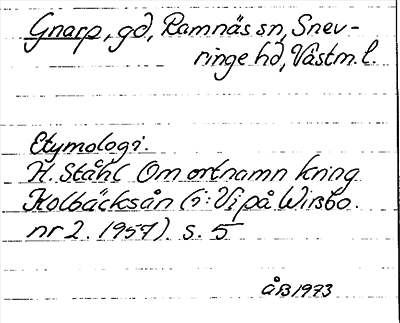 Gnarp, gd, Ramnäs sn, Snev-
ringe hd, Västm. l.
Etymologi.
H. Ståhl Om ortnamn kring
Kolbäcksån (i: Vi på Wirsbo.
nr 2. 1957). s. 5
ÅB 1973